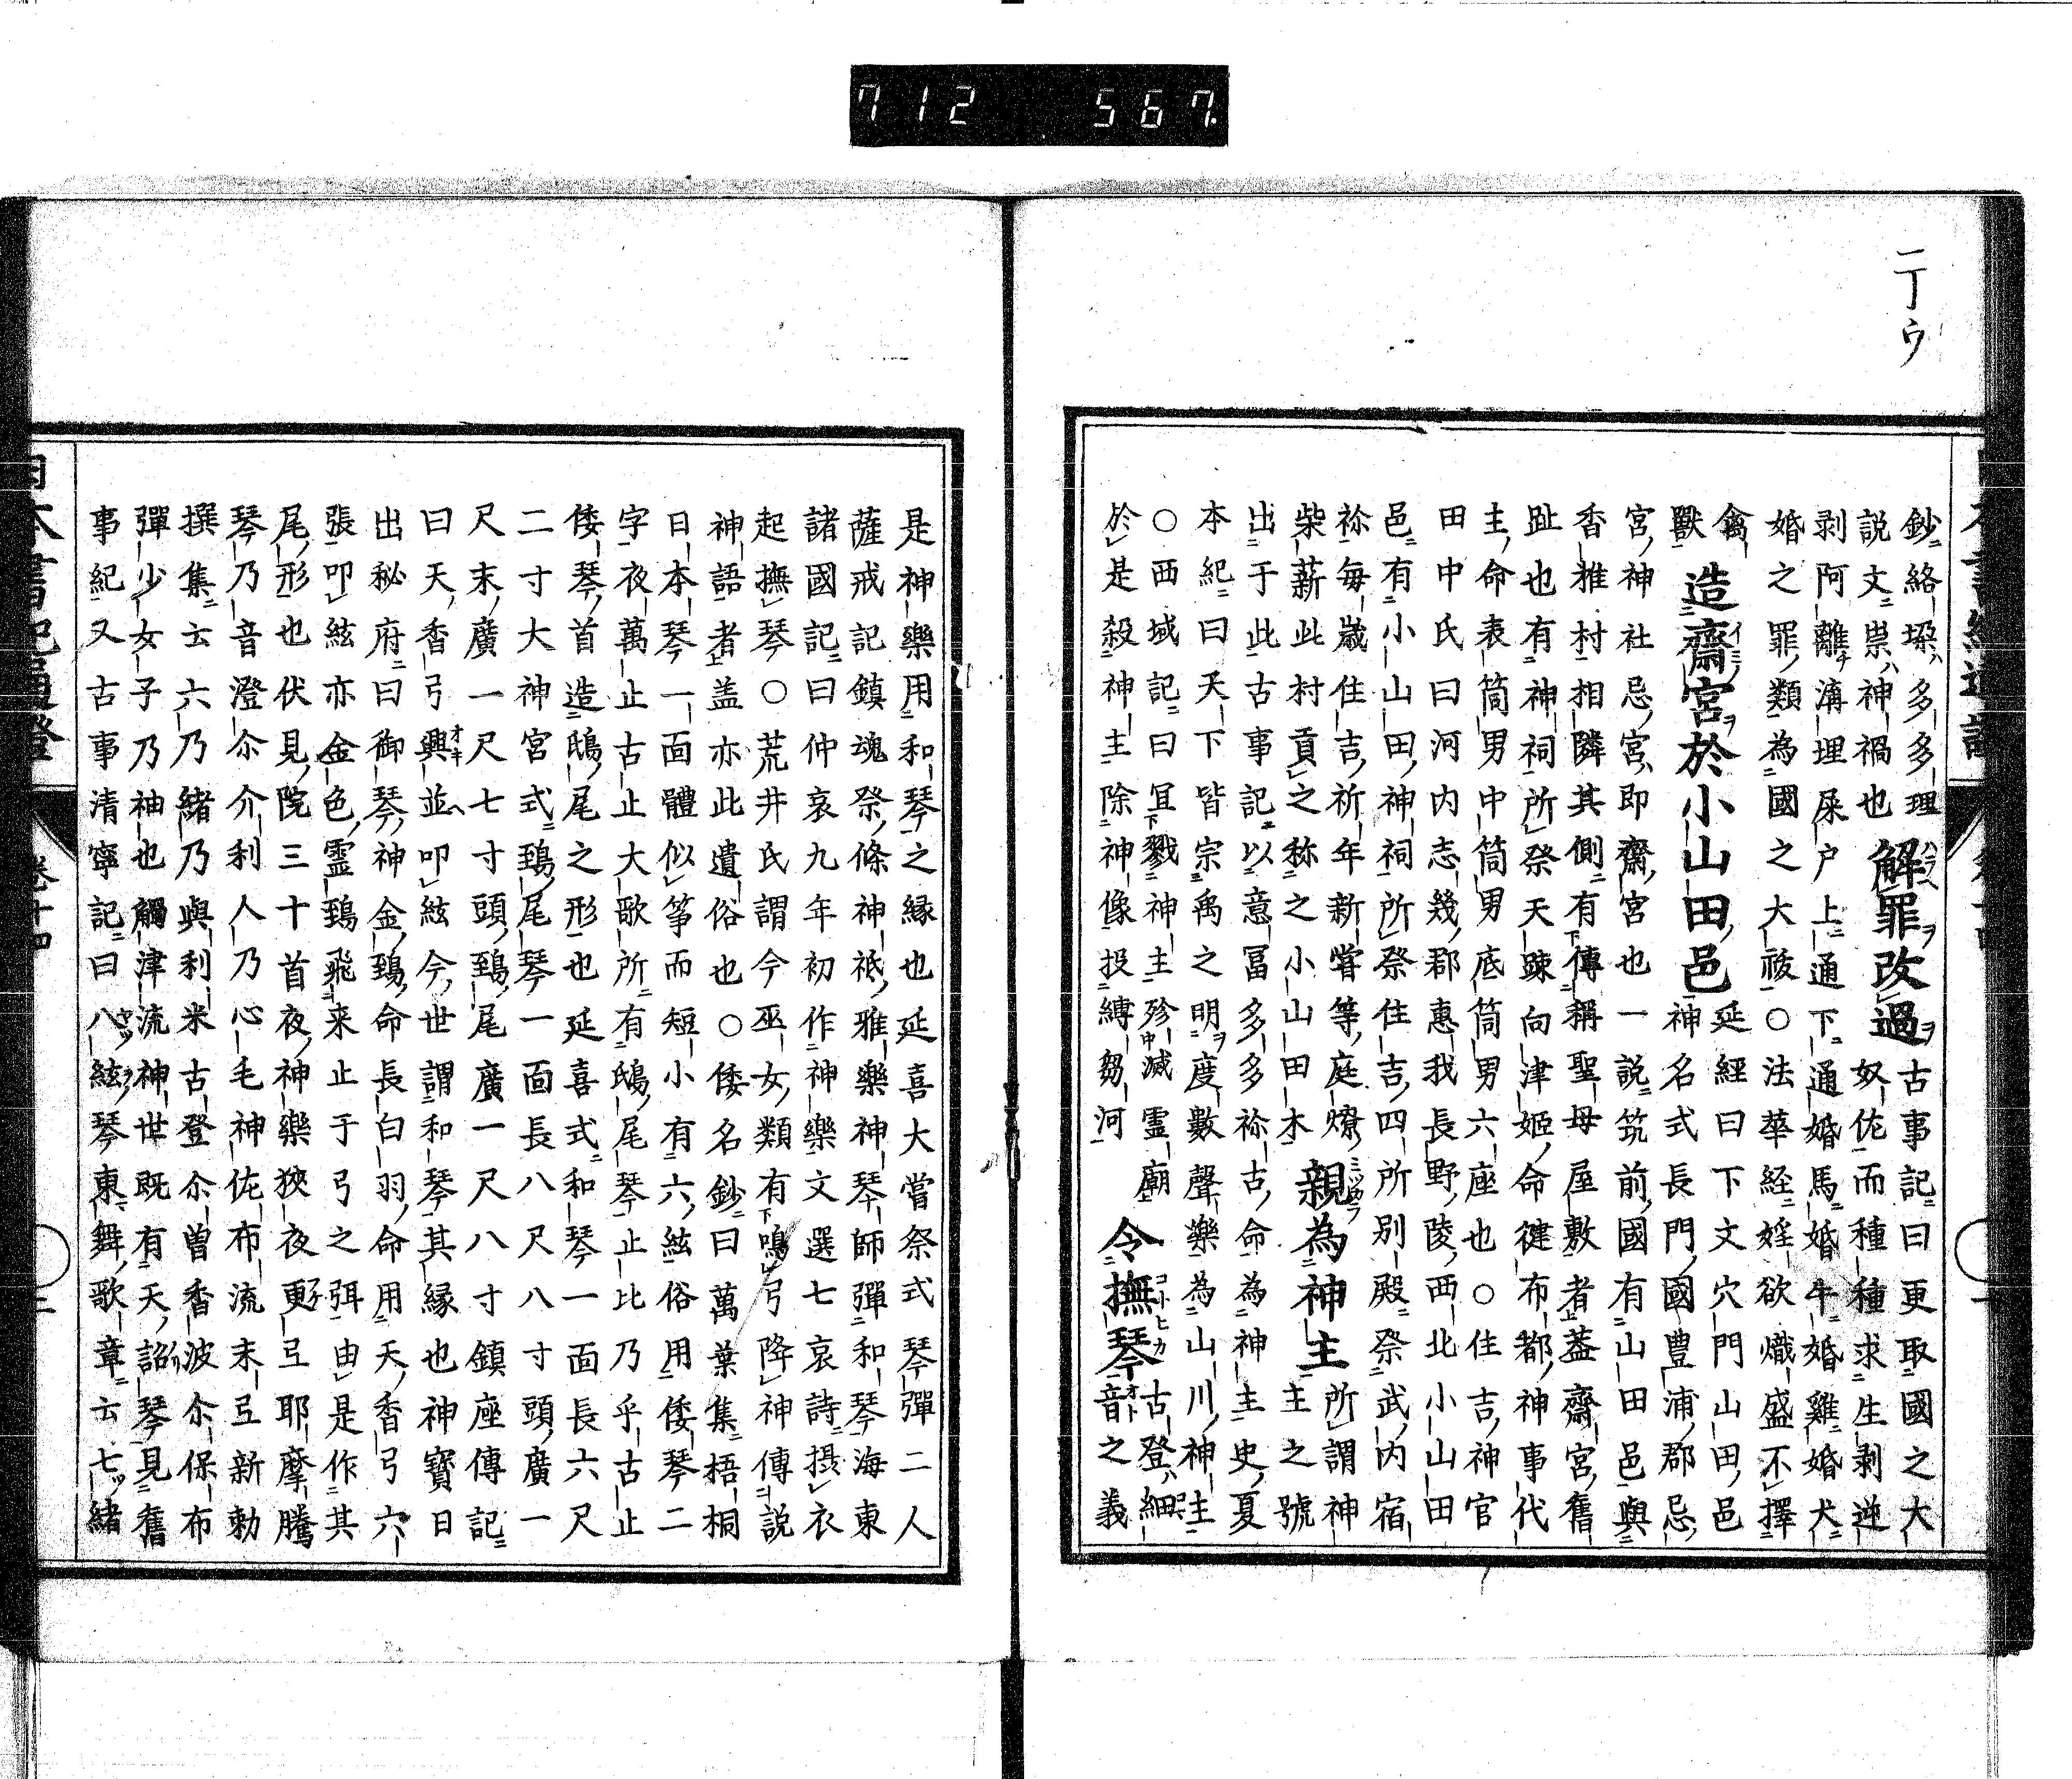 712 567.
二丁ウ
鈔絡垜多多理解罪改過古事記曰更取國之大
説文祟神禍也奴佐而種種求生剥逆
剥阿離溝埋屎戸上通下通婚馬婚牛婚雞婚犬
婚之罪類為國之大祓○法華経婬欲熾盛不擇
禽獸造齋宮於小山田邑延經曰下文穴門山田邑
神名式長門國豊浦郡忌
宮神社忌宮即齋宮也一説筑前國有山田邑與
香推村相隣其側有傳稱聖母屋敷者蓋齋宮舊
趾也有神祠所祭天疎向津姬命健布都神事代
主命表筒男中筒男底筒男六座也○住吉神官
田中氏曰河内志幾郡惠我長野陵西北小山田
邑有小山田神祠所祭住吉四所別殿祭武内宿
祢毎歲住吉祈年新嘗等庭燎
柴薪此村貢之称之小山田木親為神主所謂神
主之號
出于此古事記以意冨多多祢古命為神主史夏
本紀曰天下皆宗禹之明度數聲樂為山川神主
○西域記曰冝戮神主殄滅霊廟令撫琴古登細
音之義
於是殺神主除神像投縛芻河
是神樂用和琴之縁也延喜大嘗祭式琴彈二人
薩戒記鎮魂祭條神祗雅樂神琴師彈和琴海東
諸國記曰仲哀九年初作神樂文選七哀詩摂衣
起撫琴○荒井氏謂今巫女類有鳴弓降神傳説
神語者盖亦此遺俗也○倭名鈔曰萬葉集梧桐
日本琴一面體似箏而短小有六絃俗用倭琴二
字夜萬止古止大歌所有鴟尾琴止比乃乎古止
倭琴首造鴟尾之形也延喜式和琴一面長六尺
二寸大神宮式鵄尾琴一面長八尺八寸頭廣一
尺末廣一尺七寸頭鵄尾廣一尺八寸鎮座傳記
曰天香弓興並叩絃今世謂和琴其縁也神寳日
出秘府曰御琴神金鵄命長白羽命用天香弓六
張叩絃亦金色霊鵄飛来止于弓之弭由是作其
尾形也伏見院三十首夜神樂狹夜更弖耶摩騰
琴乃音澄尒介利人乃心毛神佐布流末弖新勅
撰集云六乃緒乃與利米古登尒曽香波尒保布
彈少女子乃袖也觸津流神世既有天詔琴見舊
事紀又古事清寧記曰八絃琴東舞歌章云七緒
日本書紀通證
卷十四